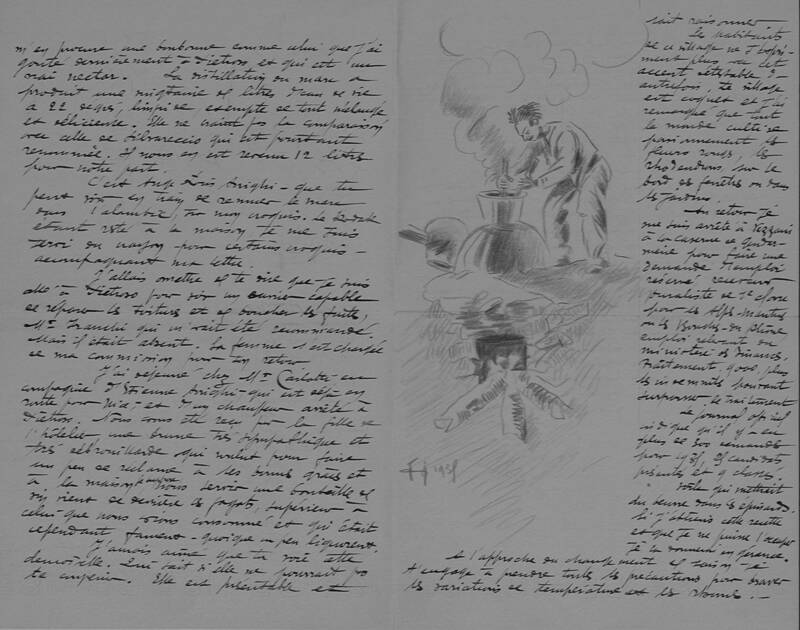 m'en procure une bonbonne comme celui que j'ai
goûté dernièrement à Piétroso, et qui est un
vrai nectar. La distillation du marc a
produit une migtaine de litres d'eau de vie
à 22 degrés, limpide exempte de tout mélange
et délicieuse. Elle ne craint pas la comparaison
avec celle de qui est pourtant
renommée. Il nous en est revenu 12 litres
pour notre part.
C'est Ange Arrighi - que tu
peux voir en train de remuer le marc
dans l'alambic, sur mon croquis. Le Kodak
étant resté à la maison je me suis
servi du crayon pour certains croquis -
accompagnant ma lettre.
J'allais omettre de te dire que je suis
allé à Piétroso pour voir un ouvrier capable
de réparer les toitures et de boucher les fuites,
Mr Franchi qui m'avait été recommandé.
Mais il était absent. Sa femme s'est chargée
de ma commission pour son retour
J'ai déjeuné chez Mr en
compagnie d'Etienne Arrighi - qui est déjà en
route pour Nice, et d'un chauffeur arrêté à
Piétroso. Nous avons été reçu par la fille de
l'hôtelier, une brune très sympathique et
très débrouillarde qui voulut pour faire
un peu de réclame à ses bonnes grâces et
à la maison nous servir une bouteille de
vin vieux de derrière les fagots, supérieur à
celui que nous avions consommé et qui était
cependant fameux - quoique un peu liquoreux.
J'aurais aimé que tu voie cette
demoiselle. Qui sait si elle ne pourrait pas
te convenir. Elle est présentable et
sait raisonner
Les habitants
de ce village ne s'expriment
plus avec cet
accent détestable d'
autrefois, le village
est coquet et j'ai
remarqué que tout
le monde cultive
passionnément les
fleurs rouges, les
rhododendrons, sur le
bord des fenêtres ou dans
les jardins.
Au retour je
me suis arrêté à Vezzani
à la caserne de gendarmerie
pour faire une
demande d'emploi
réservé receveur
buraliste de 1e classe
pour les Alpes-Maritimes
ou les Bouches-du-Rhône
emploi relevant du
ministère des Finances.
Traitement, plus
les remises pouvant
surpasser le traitement
Le journal officiel
indique qu'il y en
plus de 300 demandes
pour 1937, candidats
présents et 9 classés.
Voilà qui mettrait
du beurre dans les épinards.
Si j'obtiens cette recette
et que je ne puisse l'occuper
je la donnerai en gérance.
1937
A l'approche du changement de saison je
t'engage à prendre toutes les précautions pour braver
les variations de température et les rhumes. -